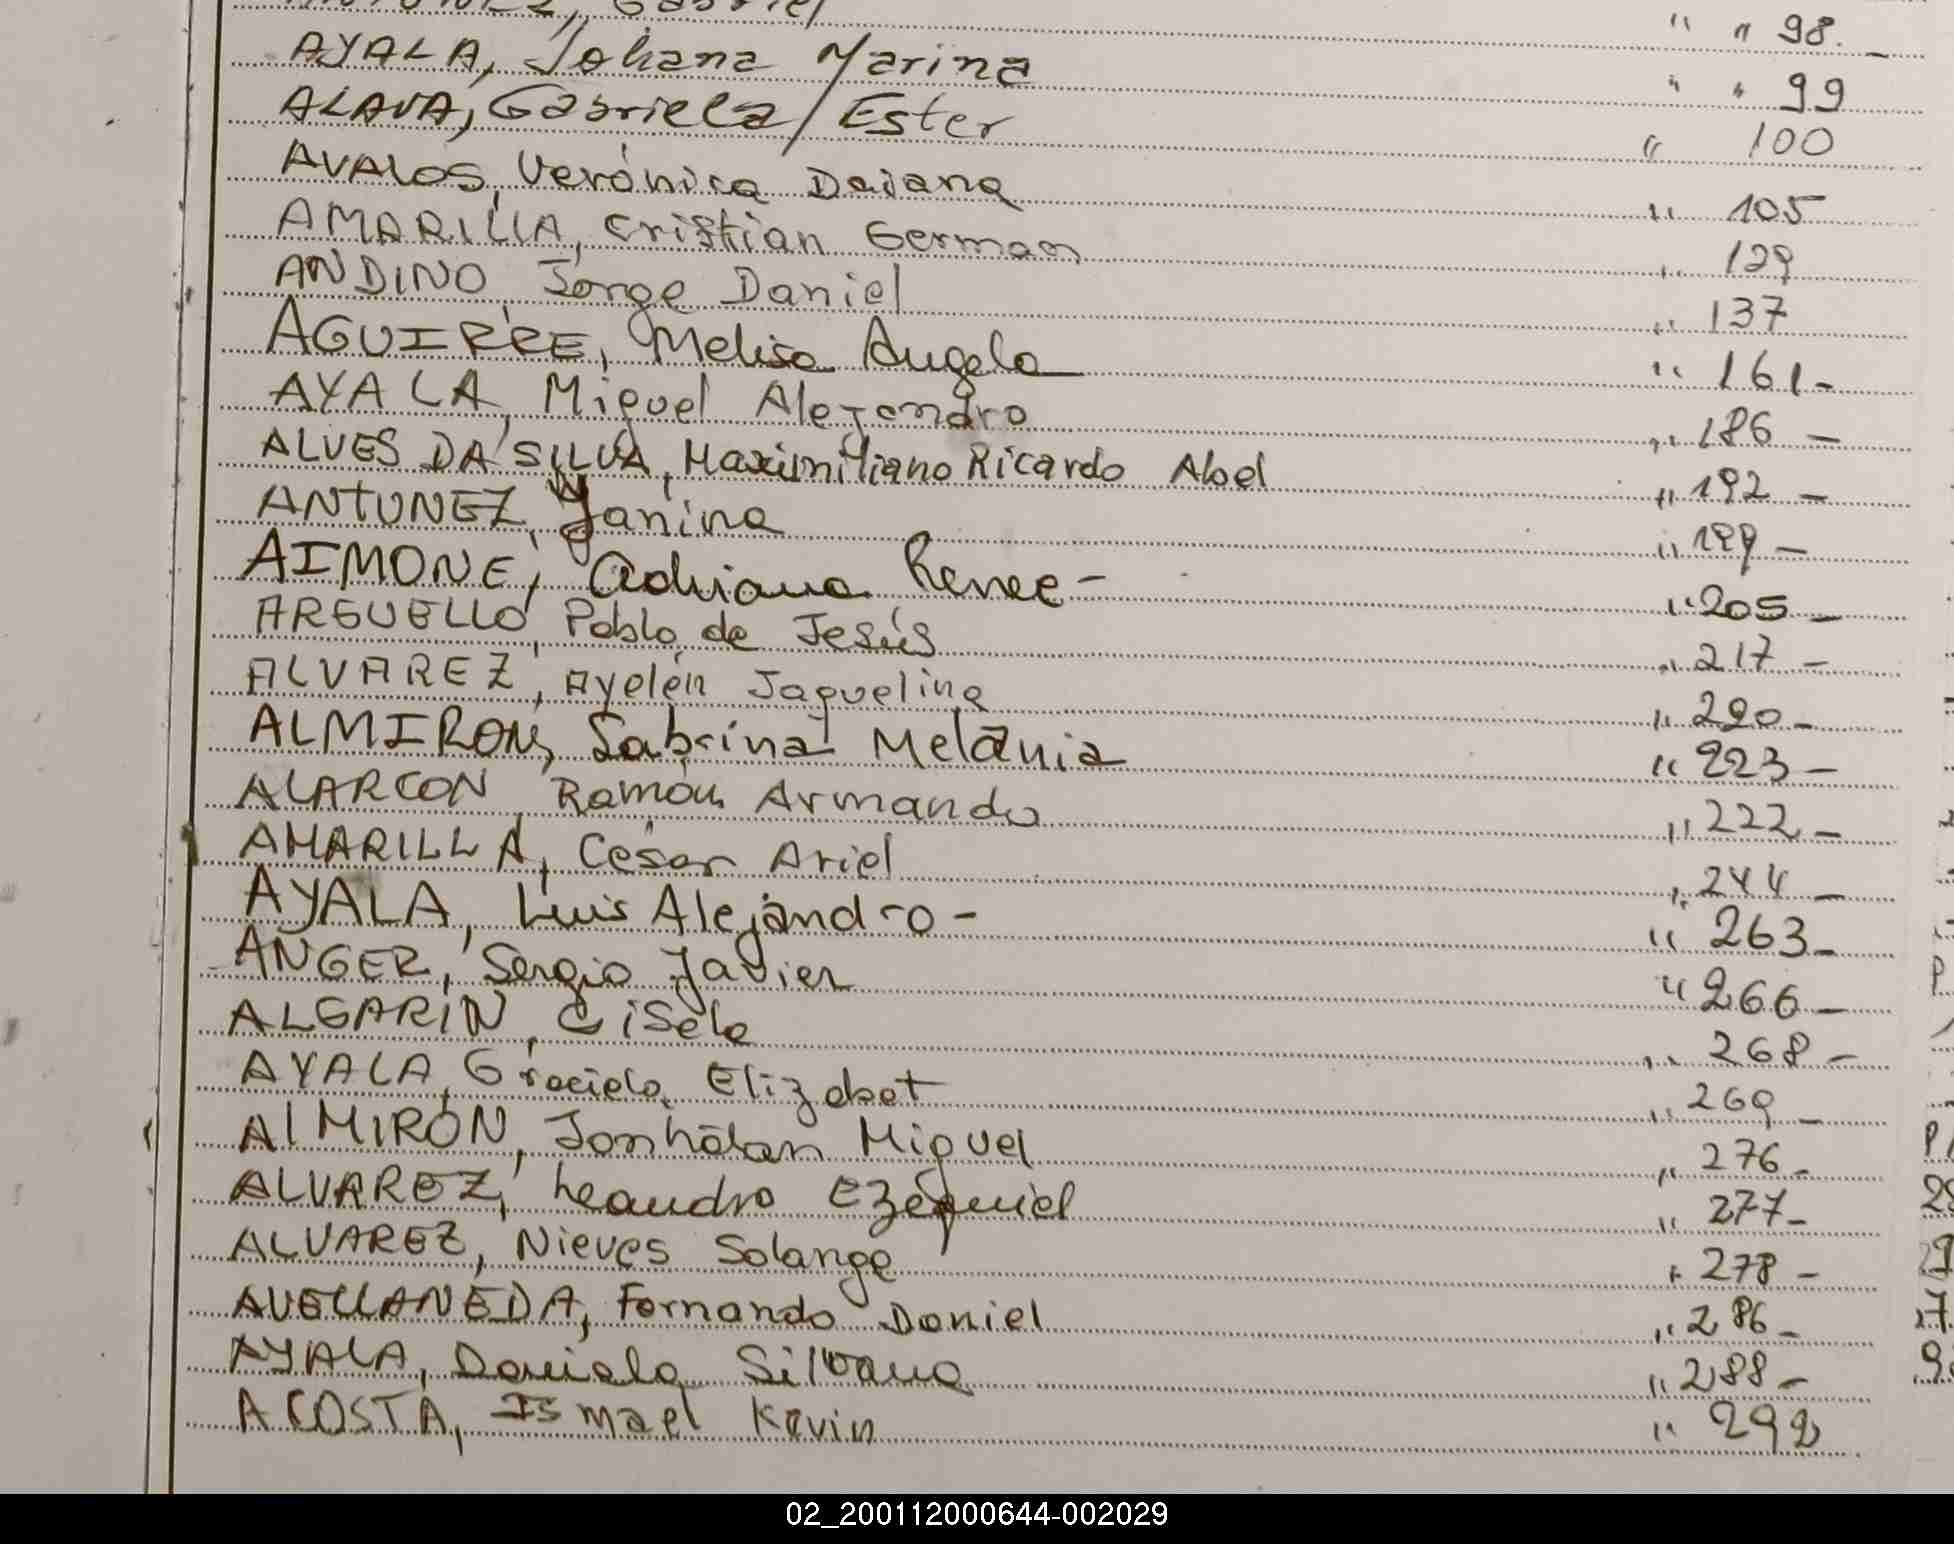 ANTUNEZ, Gabriel " " 98.-
AYALA, Johana Marina " " 99
ALAVA, Gabriela Ester " 100
AVALOS, Verónica Daiana " 105
AMARILLA, Cristian German " 129
ANDINO, Jorge Daniel " 137
AGUIRRE, Melisa Angela " 161-
AYALA, Miguel Alejandro " 186 -
ALVES DA SILVA, Maximiliano Ricardo Abel " 192 -
ANTUNEZ, Yanina " 199 -
AIMONE, Adriana Renee - " 205 -
ARGUELLO, Pablo de Jesús " 217 -
ALVAREZ, Ayelén Jaquelina " 220 -
ALMIRON, Sabrina Melania " 223 -
ALARCON, Ramón Armando " 222 -
AMARILLA, César Ariel " 244 -
AYALA, Luis Alejandro - " 263 -
ANGER, Sergio Javier " 266 -
ALGARIN, Gisela " 268 -
AYALA, Graciela Elizabet " 269 -
ALMIRÓN, Jonhatan Miguel " 276 -
ALVAREZ, Leandro Ezequiel " 277 -
ALVAREZ, Nieves Solange " 278 -
AVELLANEDA, Fernando Daniel " 286 -
AYALA, Daniela Silvana " 288 -
ACOSTA, Ismael Kevin " 292
02_200112000644-002029